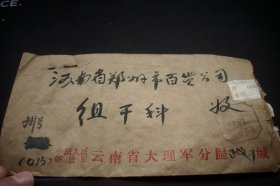 河南省郑州市百货公司
组干科 收
中国人民解放军 云南省大理军分区 缄
(013)